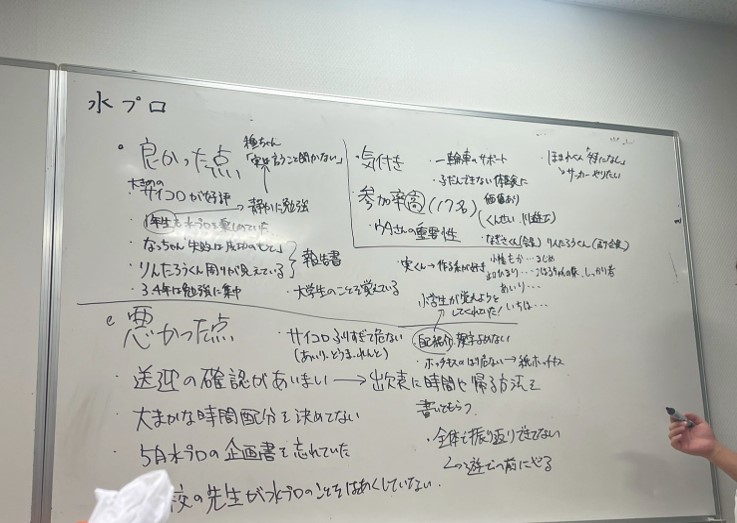 水プロ
・良かった点
種ちゃん
言うこと聞かない」
大きめの
サイコロが好評
→静かに勉強
・1年生も水プロを楽しめていた
・なっちゃん"失敗は成功のもと"
・りんたろうくん周りが見えている
報告書
・3.4年は勉強に集中
・大学生のことを覚えている
・気付き
・一輪車のサポート
・ふだんできない体験に
価値あり
・ほまれくん「特になし」
↳サッカーやりたい
参加率高(17名)
・ウタさんの重要性
・なぎさくん
りんたろうくん
・実くん→作る系が好き
しっかり者
あいり…
いちは…
小学生が覚えようと
してくれてた!
・悪かった点
・サイコロふりすぎて危ない
(あいり、とうま、れんと)
自己紹介 漢字よめない
・ホッチキスのはり危ない→紙ホッチキス
・送迎の確認があいまい→出欠表に時間や帰る方法を
書いてもらう
・大まかな時間配分を決めてない
・5月水プロの企画書を忘れていた
・全体で振り返りできてない
↳遊ぶ前にやる
校の先生が水プロのことをはあくしていない。